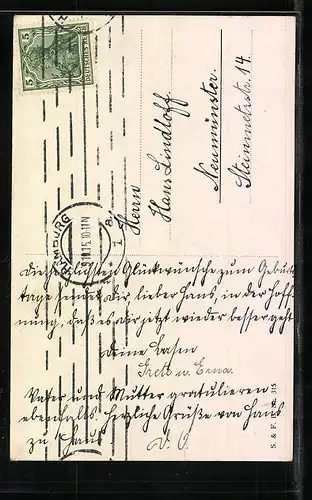 5
DEUTSCHES REICH
5
HAMBURG
9.10.15.10-11N
* 1 a
Herrn
Hans Lindloff.
Neumünster.
Steinmetzstr. 14
Die herzlichsten Glückwünsche zum Geburts
tage sendet Dir lieber Hans, in der Hoff-
nung, daß es Dir jetzt wieder besser geht
Deine Basen
Grete u. Erna.
Vater und Mutter gratulieren
ebenfalls. Herzliche Grüße von Haus
zu Haus
D. O.
S. & F. No. 315